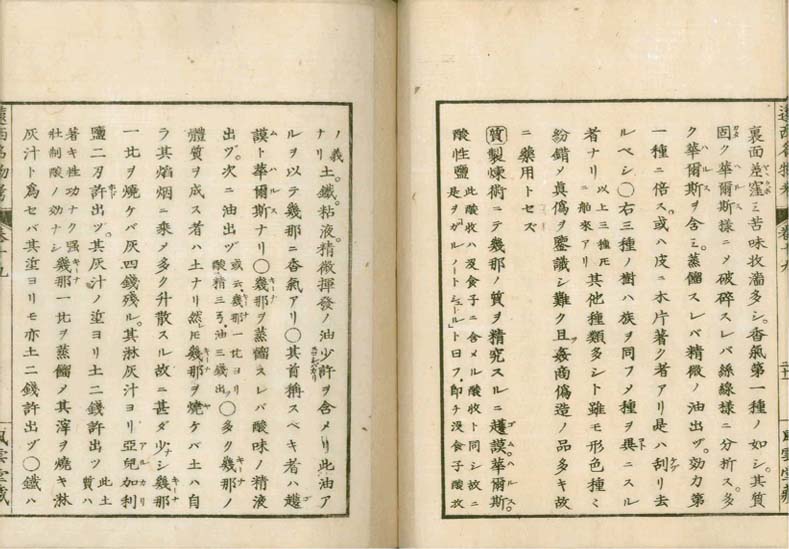 裏面差窪ミ苦味收濇多シ。香氣第一種ノ如シ。其質
固ク華爾斯樣ニメ破碎スレバ絲線樣ニ分析ス。多
ク華爾斯ヲ含ミ。蒸餾スレバ精微ノ油出ヅ。効力第
一種ニ倍ス。或ハ皮ニ木片著ク者アリ是ハ刮リ去
ルベシ〇右三種ノ樹ハ族ヲ同フメ種ヲ異ニスル
者ナリ 以上三種 ニ舶來アリ 其他種類多シト雖モ形色種ミ
紛錯メ眞僞ヲ鑒識シ難ク且姦商僞造ノ品多キ故
ニ藥用トセズ
質製煉術ニテ幾那ノ質ヲ精究スルニ謨華爾斯。
酸性鹽 此酸收ハ沒食子ニ含メル酸收ト同シ故ニ 是ヲ「ガルノートシュール」ト曰フ即チ沒食子酸
ノ義。土。鐵。粘液。精微揮發ノ油少許ヲ含メリ此油ア
ルヲ以テ幾那ニ香氣アリ〇其首稱スベキ者ハ
謨ト華爾斯ナリ〇幾那ヲ蒸餾スレバ酸味ノ精液
出ヅ。次ニ油出ヅ 或云幾那一比ヨリ 酸精三弓油三錢出 〇多ク幾那ノ
體質ヲ成ス者ハ土ナリ然レモ幾那ヲ燒ケバ土ハ自
ラ其焰烟ニ乘メ多ク升散スル故ニ甚ダ少ナシ幾那
一比ヲ燒ケバ灰四錢殘ル。其淋灰汁ヨリ亞兒加利
鹽二刃許出ヅ。其灰汁ノヨリ土二錢許出ヅ 此土質ハ
著キ性功ナク酸ヲ制スル効ナシ 幾那一比ヲ蒸餾メ其滓ヲ燒キ淋
灰汁ト爲セバ其ヨリモ亦土二錢許出ヅ〇鐵ハ
遠西名物考
卷十九
風雲堂藏